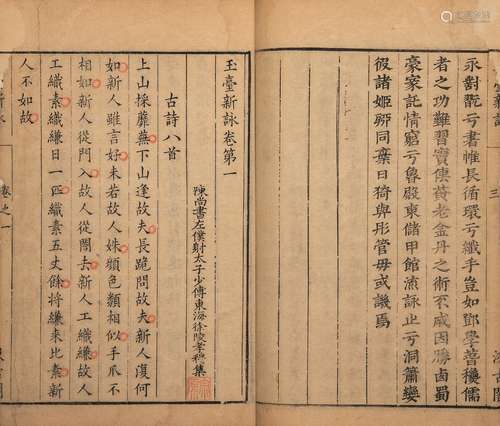 永對翫亏書帷長循環亏纖手豈如鄧學春穐儒
者之功難習竇傳黃老金丹之術不成因勝鹵蜀
豪家託情窮亏魯殿東儲甲館流詠止亏洞簫孌
彼諸姬聊同棄日猗與彤管毋或譏焉
玉臺新詠卷第一
陳尚書左僕射太子少傅東海徐陵孝穆集
古詩八首
上山採蘼蕪下山逢故夫長跪問故夫新人復何
如新人雖言好未若故人姝顏色類相似手爪不
相如新人從門入故人從閤去新人工織縑故人
工織素織縑日一匹織素五丈餘將縑來比素新
人不如故
卷之一